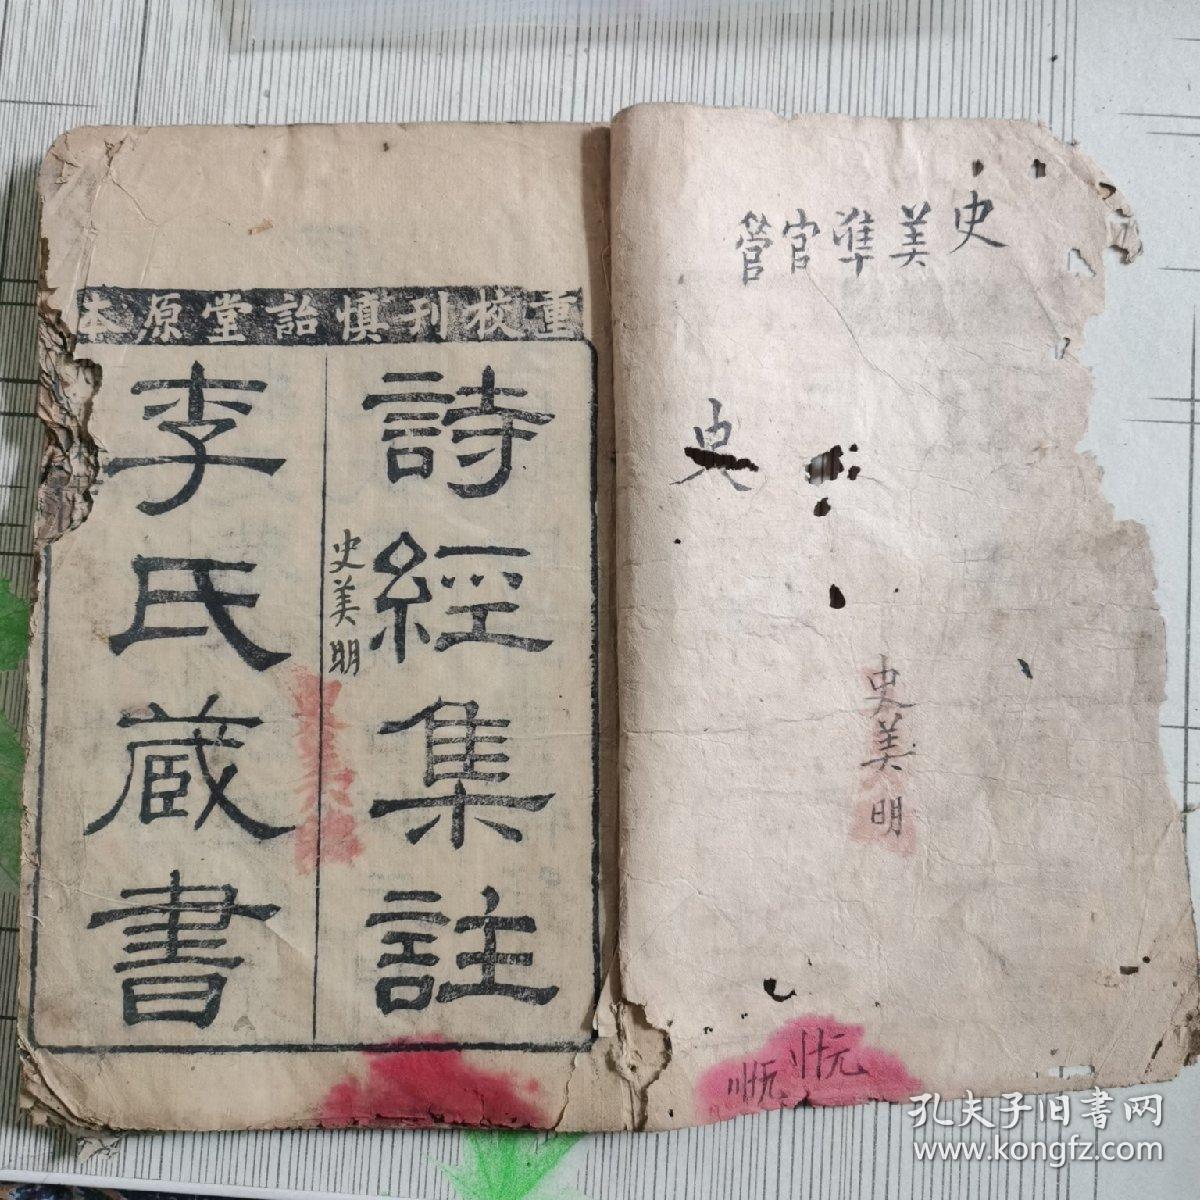 重校刊慎詒堂原本
詩經集註
史美明
李氏蔵書
史美準官營
史
史美明
孔夫子旧書网
www.kongfz.com